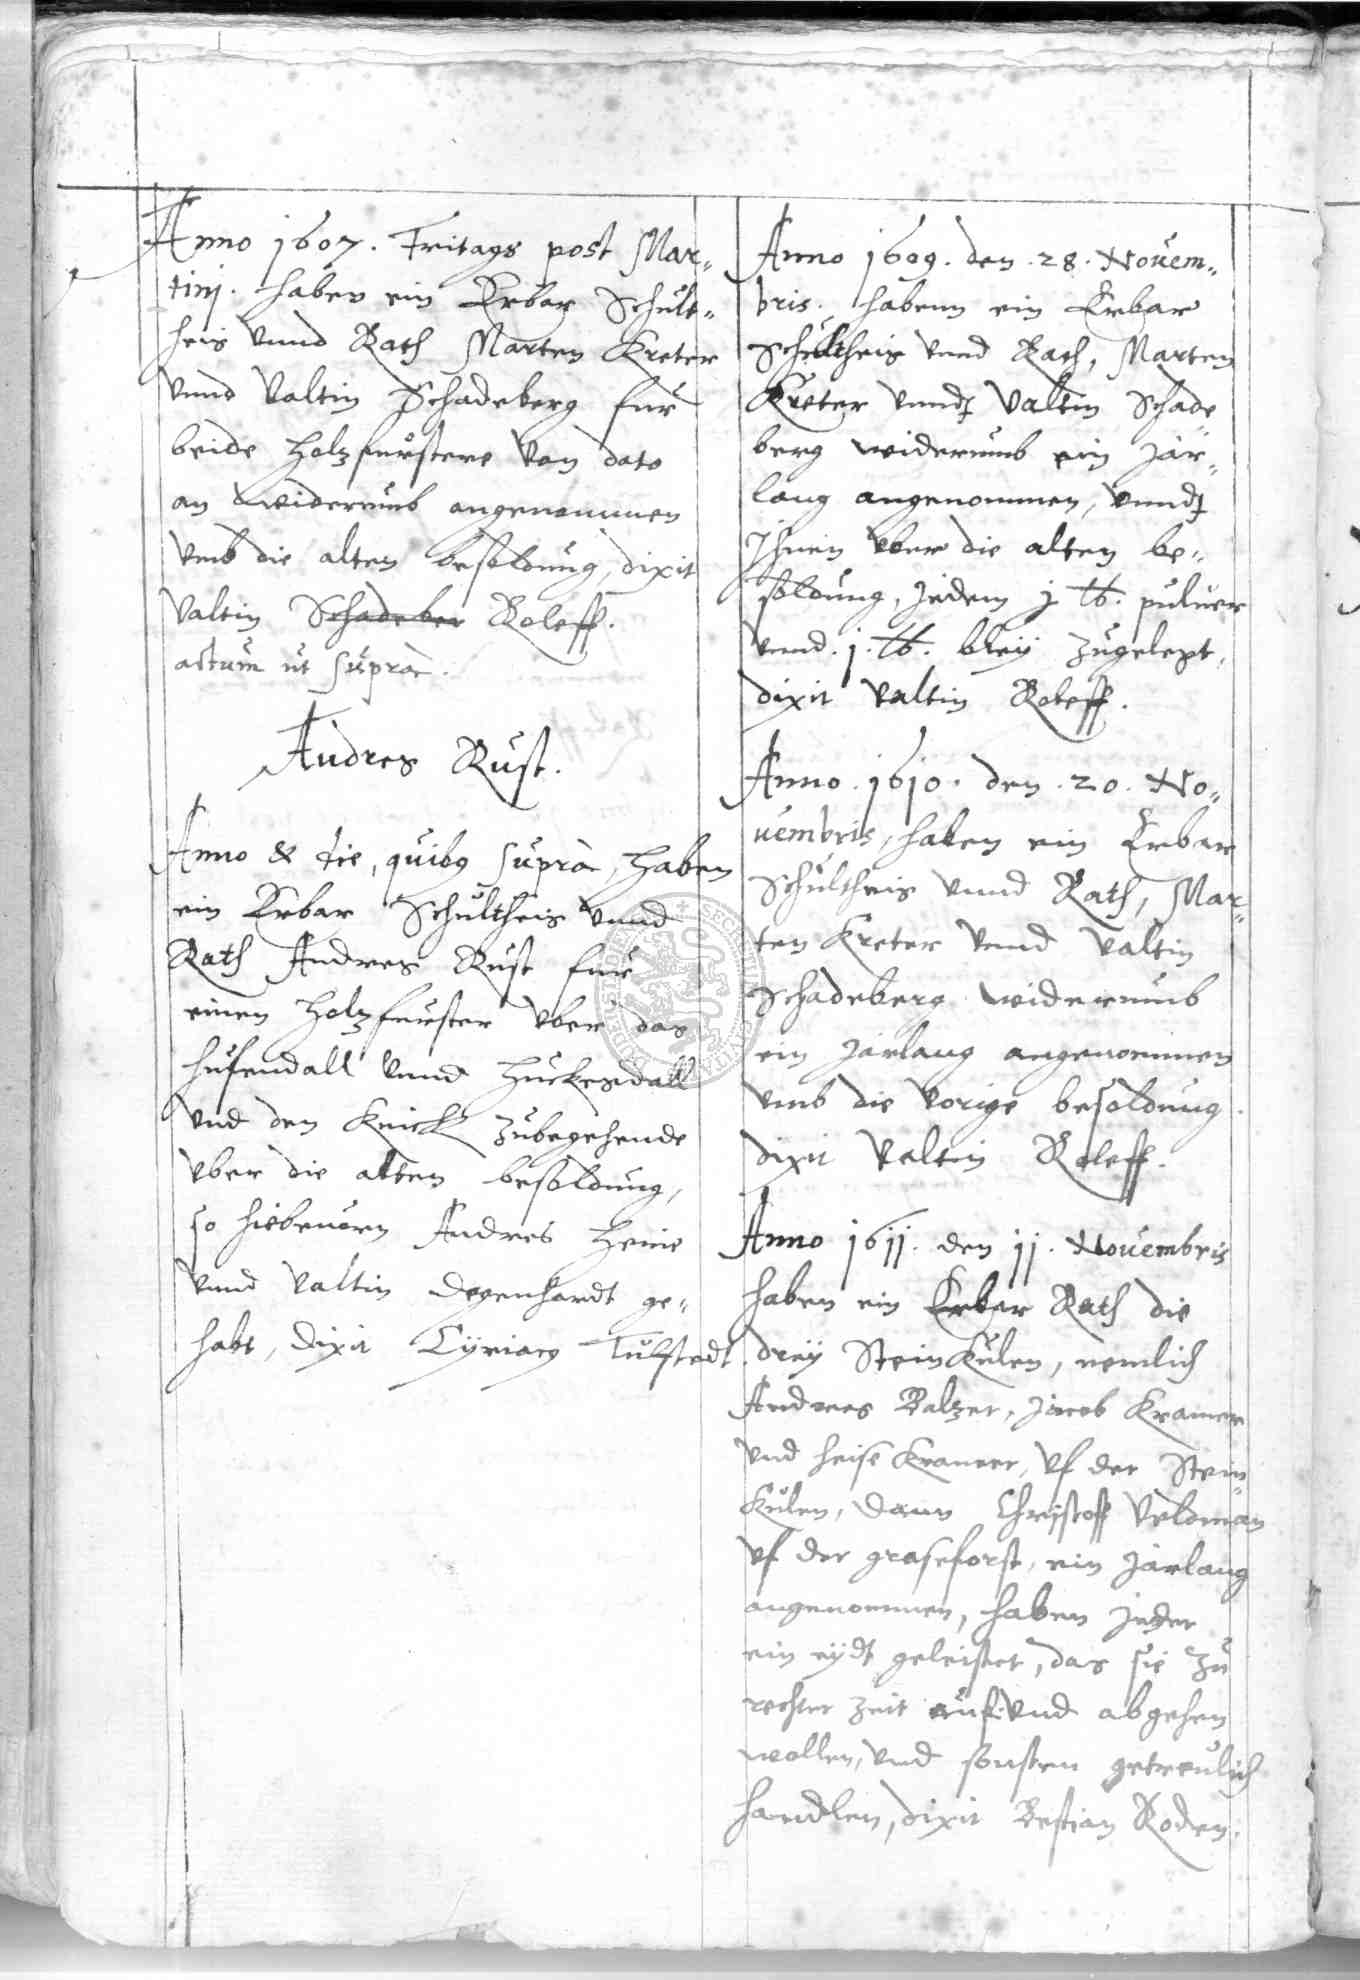 Anno 1607. Fritags post Mar„
tinj. haben ein Erbar Schult„
heis vnnd Rath Marten Kreter
vnnd Valtin Schadeberg fur
beide holzfurstere von dato
an widerumb angenommen
vmb die alten besoldung, dixit
Valtin Schadeber Roleff.
actum ut suprà.
Andres Rust.
Anno & die, quibg suprà, haben
ein Erbar Schultheis vnnd
Rath Andres Rust fur
einen holzfurster vber das
hufendall vnnd huckesdall
vnd den Knick zubegehende
vber die alten besoldung,
so hiebeuorn Andres Heine
vnnd Valtin Degenhardt ge„
habt, dixit Cÿriacg Tulstedt
Anno 1609. den .28. Nouem„
bris. habenn ein Erbar
Schultheis vnnd Rath, Marten
Kreter vnndt Valtin Schade„
berg widerumb ein Jar„
lang angenommen, vnndt
Ihnen vber die alten be„
soldung, Jedem j lb. puluer
vnnd .j. lb. bleÿ zugelegt,
dixit Valtin Roleff.
Anno .1610. den .20. No„
uembris, haben ein Erbar
Schultheis vnnd Rath, Mar„
ten Kreter vnnd Valtin
Schadeberg widerumb
ein Jarlang angenommen
vmb die vorige besoldung.
dixit Valtin Roleff.
Anno 1611. den 11. Nouembris
haben ein Erbar Rath die
dreÿ Steinkulen, nemlich
Andrees Balzer, Jacob Kramer
vnd heise Kramer, vf der Stein„
kulen, dann Christoff Veldman
vf der graseforst, ein Jarlang
angenommen, haben Jeder
ein eÿdt geleistet, das sie zu
rechter zeit auf vnd abgehen
wollen, vnd sonsten getreulich
handlen, dixit Bestian Roden.